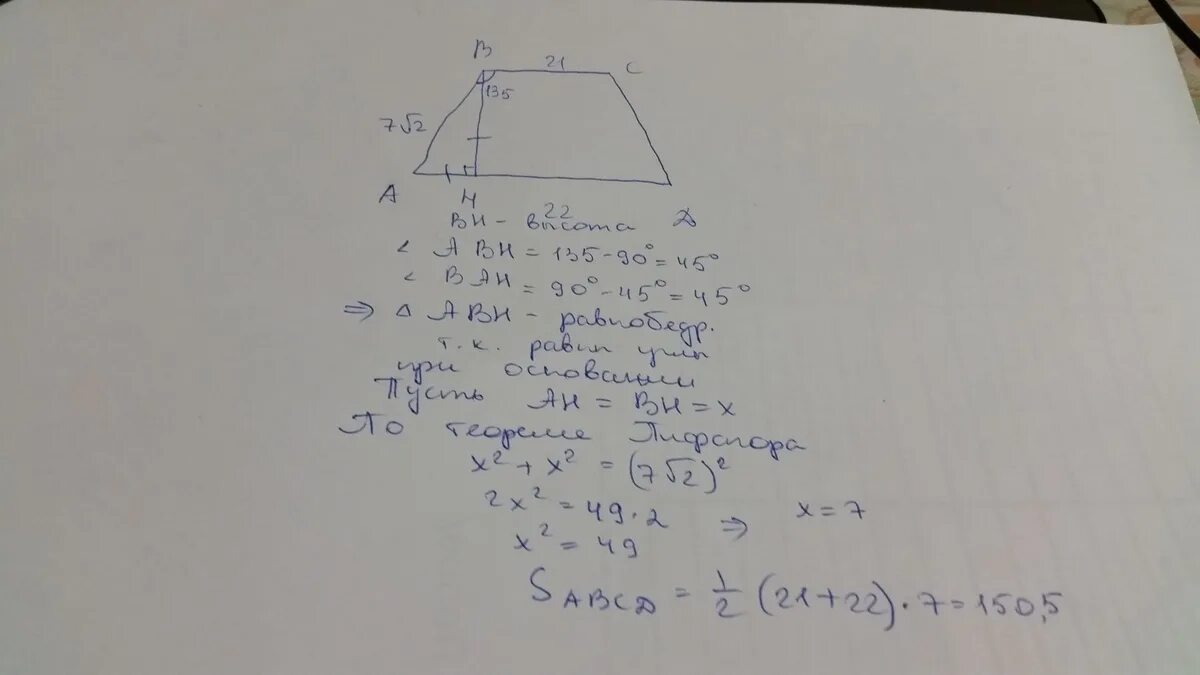 B 21 C
135
7√2
A H 22 D
BH - высота
< ABH = 135 - 90° = 45°
< BAH = 90° - 45° = 45°
⇒ △ ABH - равнобедр.
т.к. равны углы
при основании
Пусть AH = BH = x
По теореме Пифагора
x² + x² = (7√2)²
2x² = 49·2 ⇒ x = 7
x² = 49
S ABCD = 1/2 (21+22)·7 = 150,5